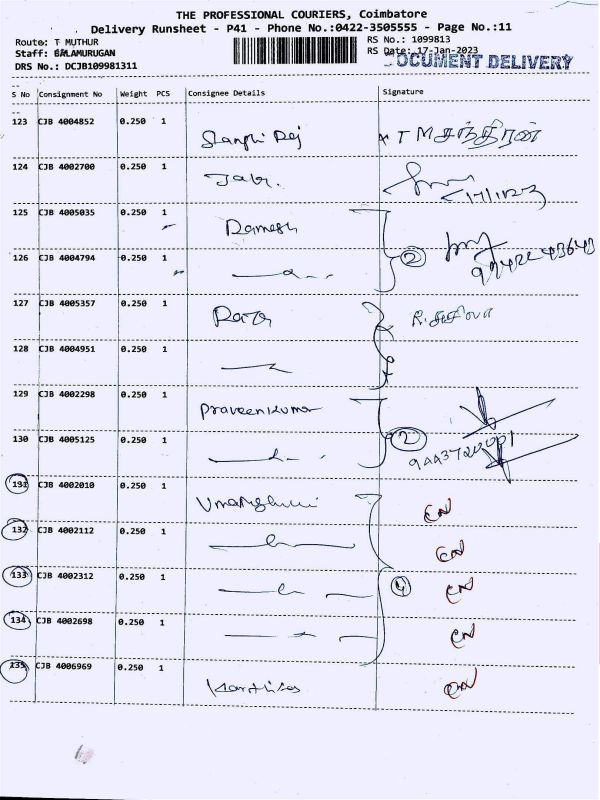 THE PROFESSIONAL COURIERS, Coimbatore
Delivery Runsheet - P41 - Phone No.:0422-3505555 - Page No.:11
Route: T MUTHUR
RS No.: 1099813
Staff: BALAMURUGAN
RS Date: 17-Jan-2023
DOCUMENT DELIVERY
DRS No.: DCJB109981311
S No Consignment No Weight PCS Consignee Details Signature
123 CJB 4004852 0.250 1 T M சந்திரன்
124 CJB 4002700 0.250 1
125 CJB 4005035 0.250 1 Ramesh
126 CJB 4004794 0.250 1 2
127 CJB 4005357 0.250 1
128 CJB 4004951 0.250 1
129 CJB 4002298 0.250 1 Praveenkumar
130 CJB 4005125 0.250 1 2
131 CJB 4002010 0.250 1
132 CJB 4002112 0.250 1
133 CJB 4002312 0.250 1 4
134 CJB 4002698 0.250 1
135 CJB 4006969 0.250 1